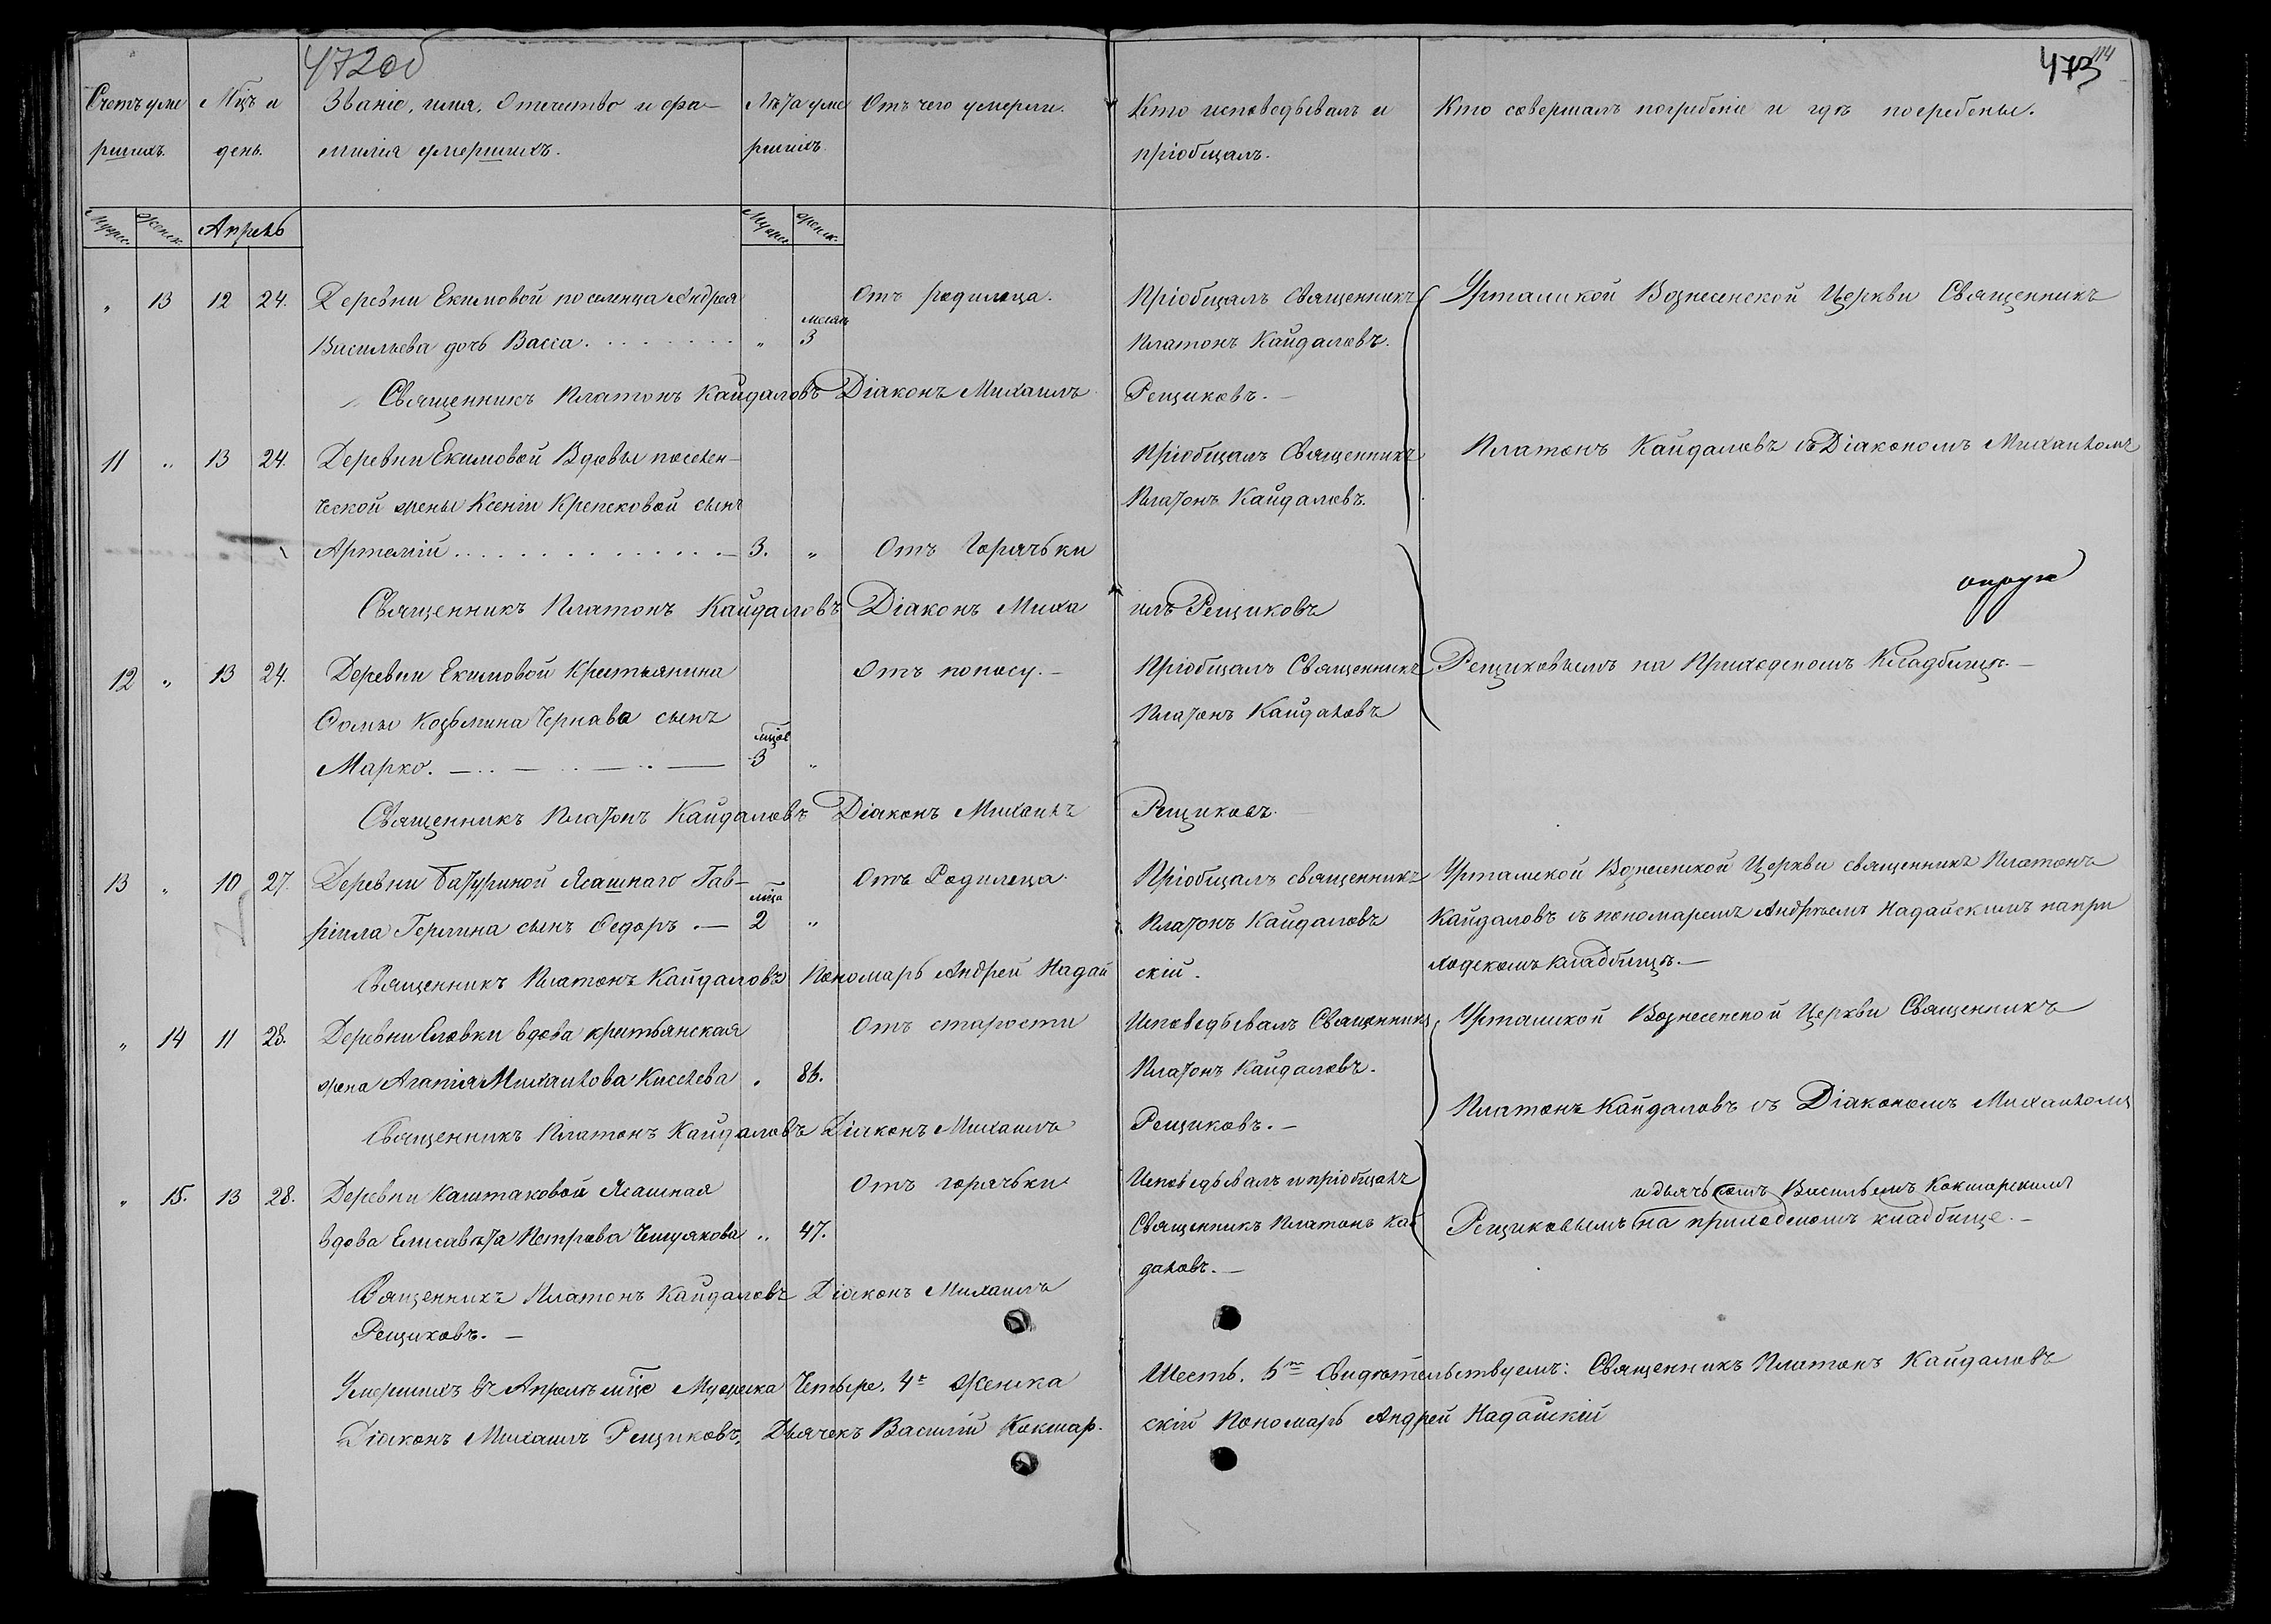 472об
473
114
Счетъ уме
ршихъ.
Мцъ и
день.
Званіе, имя, Отечество и фа-
милія умершихъ.
Лѣта уме
ршихъ
Отъ чего умерли.
Кто исповедывалъ и
пріобщалъ.
Кто совершалъ погребеніе и гдѣ погребены.
Мужс. Женск. Апрель Мужес Женск.
" 13 12 24. Деревни Екимовой поселенца Андрея Отъ родимца. Пріобщалъ Священникъ Урташской Вознесенской Церкви Священникъ
Васильева дочь Васса " месяц 3 Платонъ Кайдаловъ.
Священникъ Платонъ Кайдаловъ Діаконъ Михаилъ Рещиковъ.
11 " 13 24. Деревни Екимовой Вдовы поселен- Пріобщалъ Священникъ Платонъ Кайдаловъ съ Діакономъ Михаиломъ
ческой жены Ксеніи Крепсковой сынъ Платонъ Кайдаловъ.
Артемій 3. " Отъ Горячьки
Священникъ Платонъ Кайдаловъ Діаконъ Миха илъ Рещиковъ
12 " 13 24. Деревни Екимовой Крестьянина Отъ поносу. Пріобщалъ Священникъ Рещиковымъ на Приходскомъ Кладбищѣ.
Фомы Козьмина Чернава сынъ Платонъ Кайдаловъ
Марко. мцов 3 "
Священникъ Платонъ Кайдаловъ Діаконъ Михаилъ Рещиковъ.
13 " 10 27. Деревни Батуриной Ясашнаго Гав- Отъ Родимца. Пріобщалъ священникъ Урташской Вознесенской Церкви священникъ Платонъ
ріила Гермина сынъ Федоръ. мца 2 " Платонъ Кайдаловъ Кайдаловъ съ пономаремъ Андреемъ Надайскимъ на при
Священникъ Платонъ Кайдаловъ Пономарь Андрей Надай скій. ходскомъ кладбищѣ.
" 14 11 28. Деревни Еловки вдова крестьянская Отъ старости Исповедывалъ Священникъ Урташской Вознесенской Церкви Священникъ
жена Агапія Михаилова Киселева " 86. Платонъ Кайдаловъ.
Священникъ Платонъ Кайдаловъ Діаконъ Михаилъ Рещиковъ. Платонъ Кайдаловъ съ Діакономъ Михаиломъ
" 15. 13 28. Деревни Каштаковой Ясашная Отъ горячьки Исповедывалъ и пріобщалъ и дьячькомъ Васильемъ Кокшарскимъ
вдова Елисавета Петрова Чешуякова " 47. Священникъ Платонъ Кай Рещиковымъ на приходскомъ кладбище.
даловъ.
Священникъ Платонъ Кайдаловъ Діаконъ Михаилъ
Рещиковъ.
Умершихъ въ Апрелѣ мце Мужеска Четыре. 4е Женска Шесть. 6ть Свидѣтельствуемъ: Священникъ Платонъ Кайдаловъ
Діаконъ Михаилъ Рещиковъ, Дьячекъ Василій Кокшар- скій Пономарь Андрей Надайскій